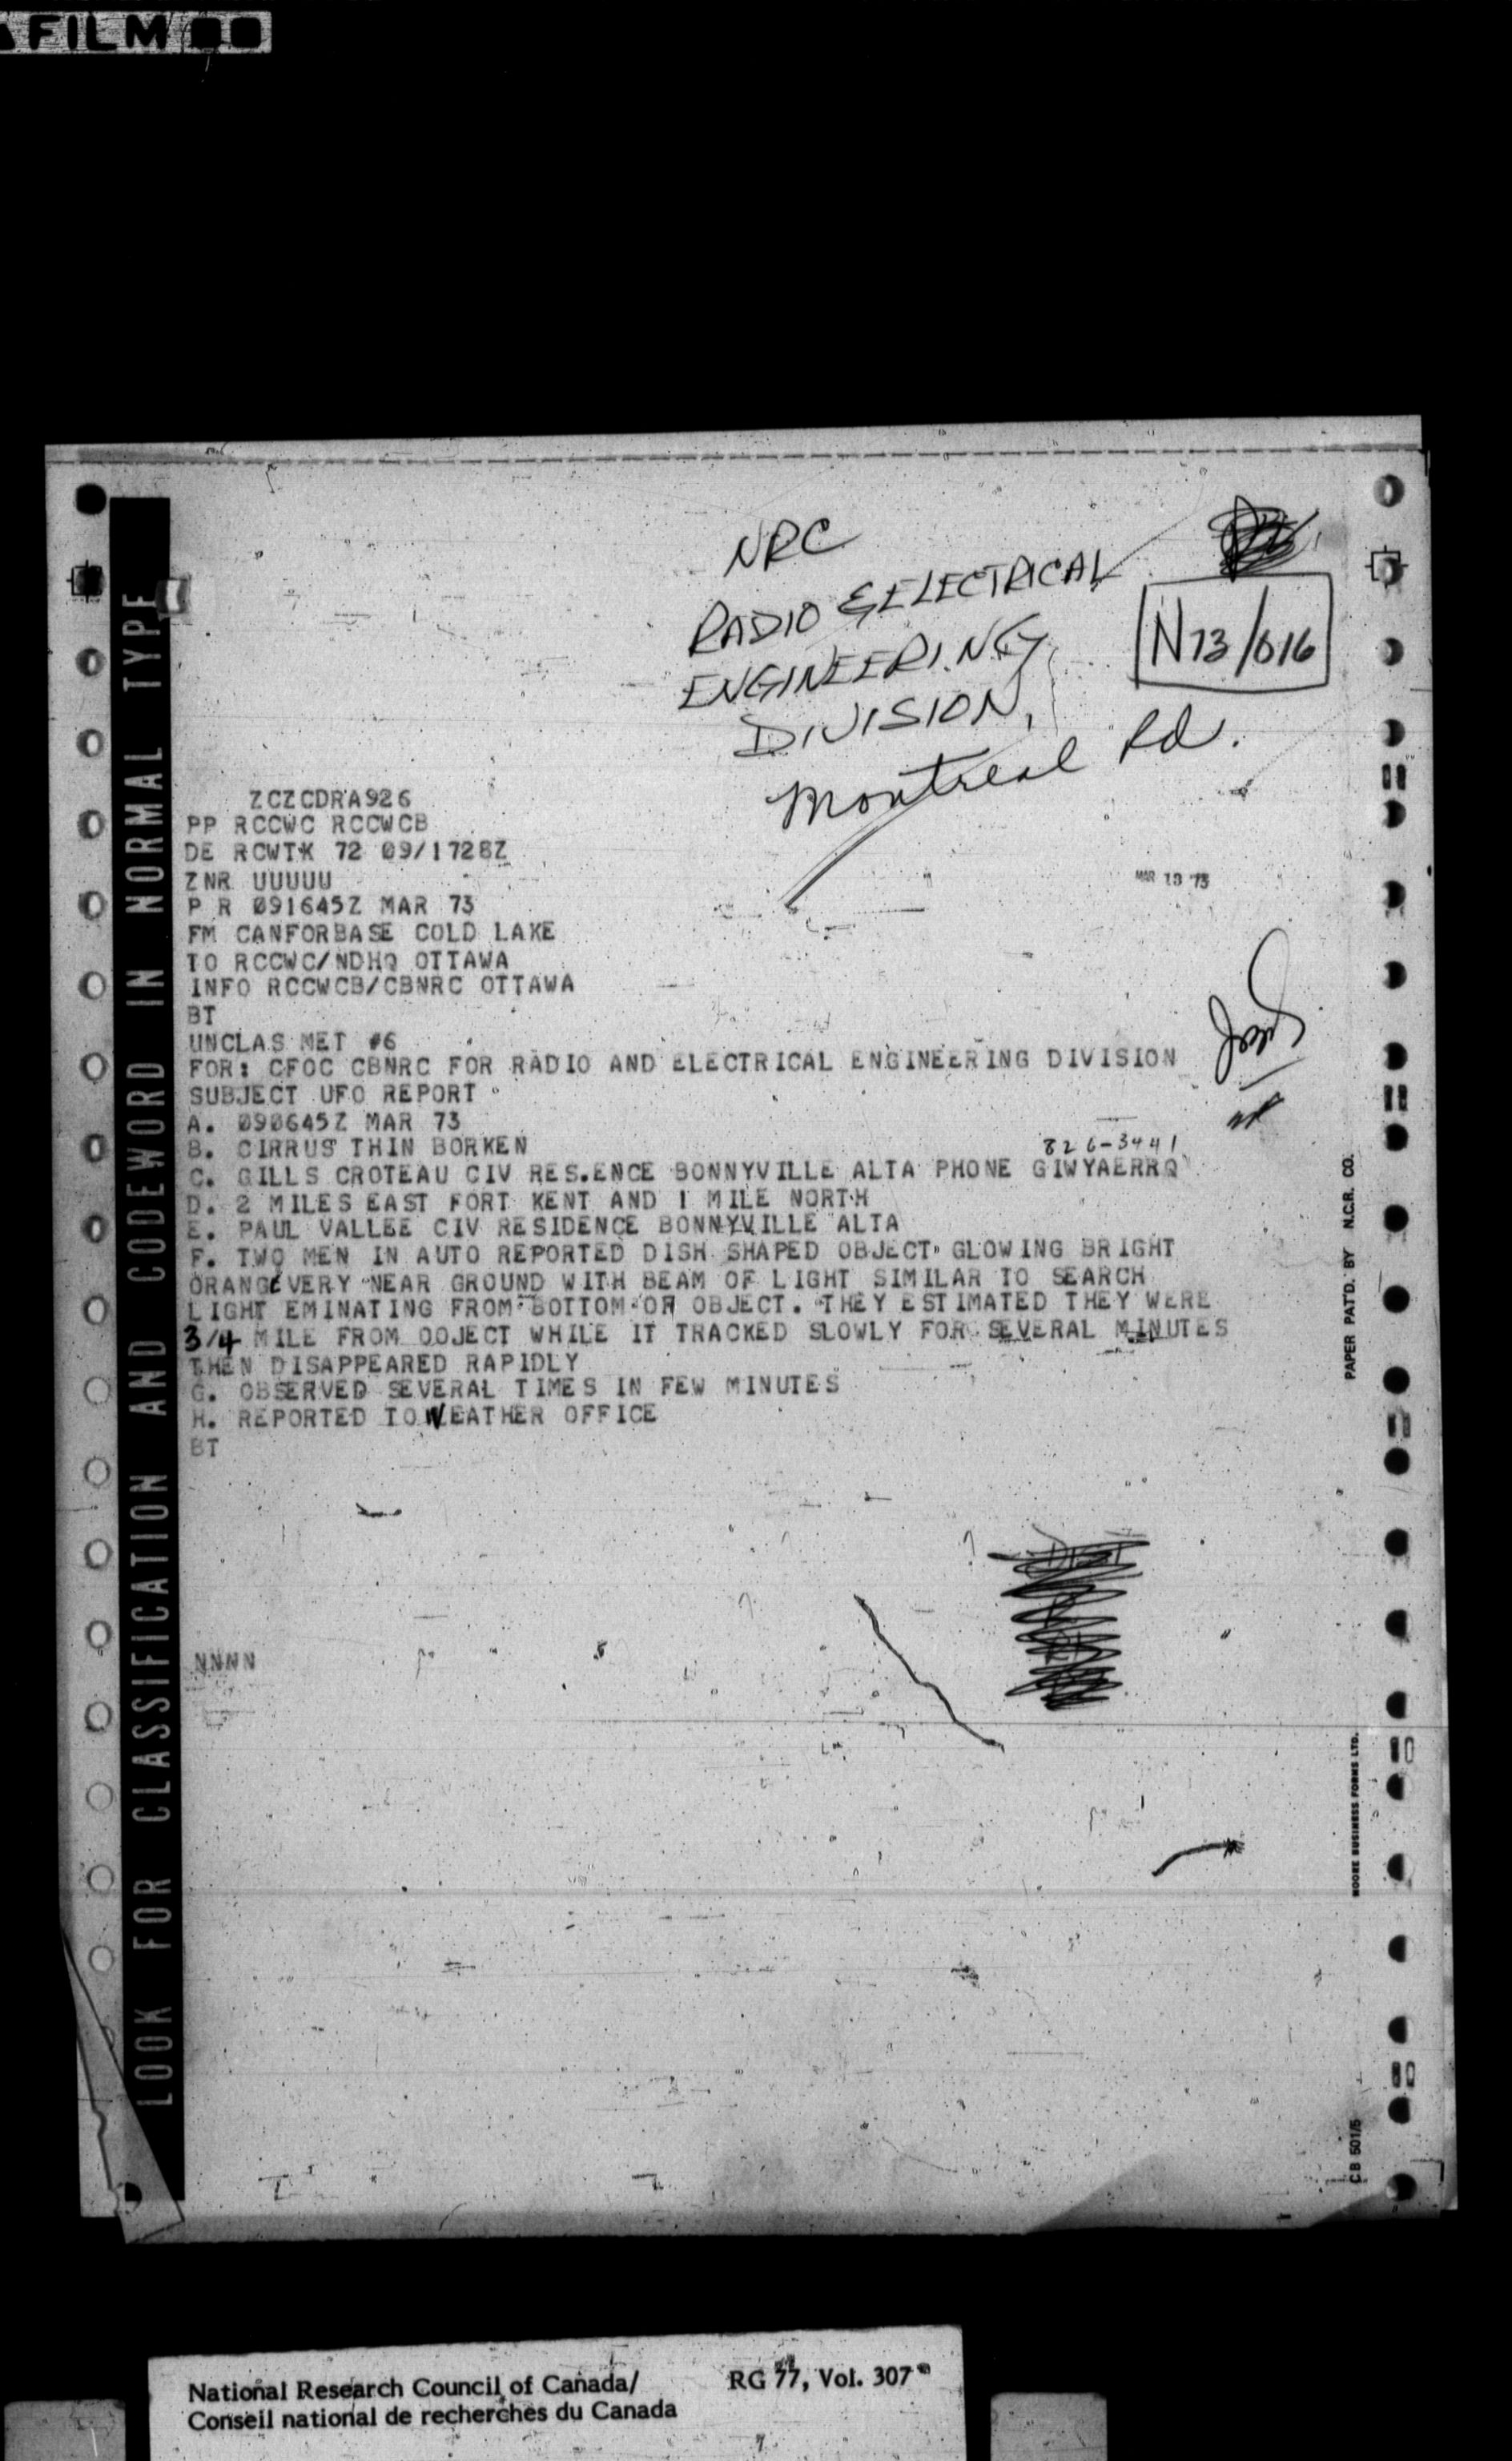 FILM
NRC
RADIO & ELECTRICAL
ENGINEERING
DIVISION,
Montreal Rd.
N73/016
ZCZCDRA926
PP RCCWC RCCWCB
DE RCWTK 72 09/1728Z
ZNR UUUUU
P R 091645Z MAR 73
FM CANFORBASE COLD LAKE
TO RCCWC/NDHQ OTTAWA
INFO RCCWCB/CBNRC OTTAWA
BT
UNCLAS MET #6
FOR: CFOC CBNRC FOR RADIO AND ELECTRICAL ENGINEERING DIVISION
SUBJECT UFO REPORT
A. 090645Z MAR 73
B. CIRRUS THIN BORKEN
826-3441
C. GILLS CROTEAU CIV RES.ENCE BONNYVILLE ALTA PHONE GIWYAERRQ
D. 2 MILES EAST FORT KENT AND 1 MILE NORTH
E. PAUL VALLEE CIV RESIDENCE BONNYVILLE ALTA
F. TWO MEN IN AUTO REPORTED DISH SHAPED OBJECT GLOWING BRIGHT
ORANGE VERY NEAR GROUND WITH BEAM OF LIGHT SIMILAR TO SEARCH
LIGHT EMINATING FROM BOTTOM OF OBJECT. THEY ESTIMATED THEY WERE
3/4 MILE FROM OOJECT WHILE IT TRACKED SLOWLY FOR SEVERAL MINUTES
THEN DISAPPEARED RAPIDLY
G. OBSERVED SEVERAL TIMES IN FEW MINUTES
H. REPORTED TO WEATHER OFFICE
BT
NNNN
MAR 13 '73
LOOK FOR CLASSIFICATION AND CODEWORD IN NORMAL TYPE
PAPER PAT'D. BY N.C.R. CO.
MOORE BUSINESS FORMS LTD.
CB 501/5
National Research Council of Canada/
Conseil national de recherches du Canada
RG 77, Vol. 307